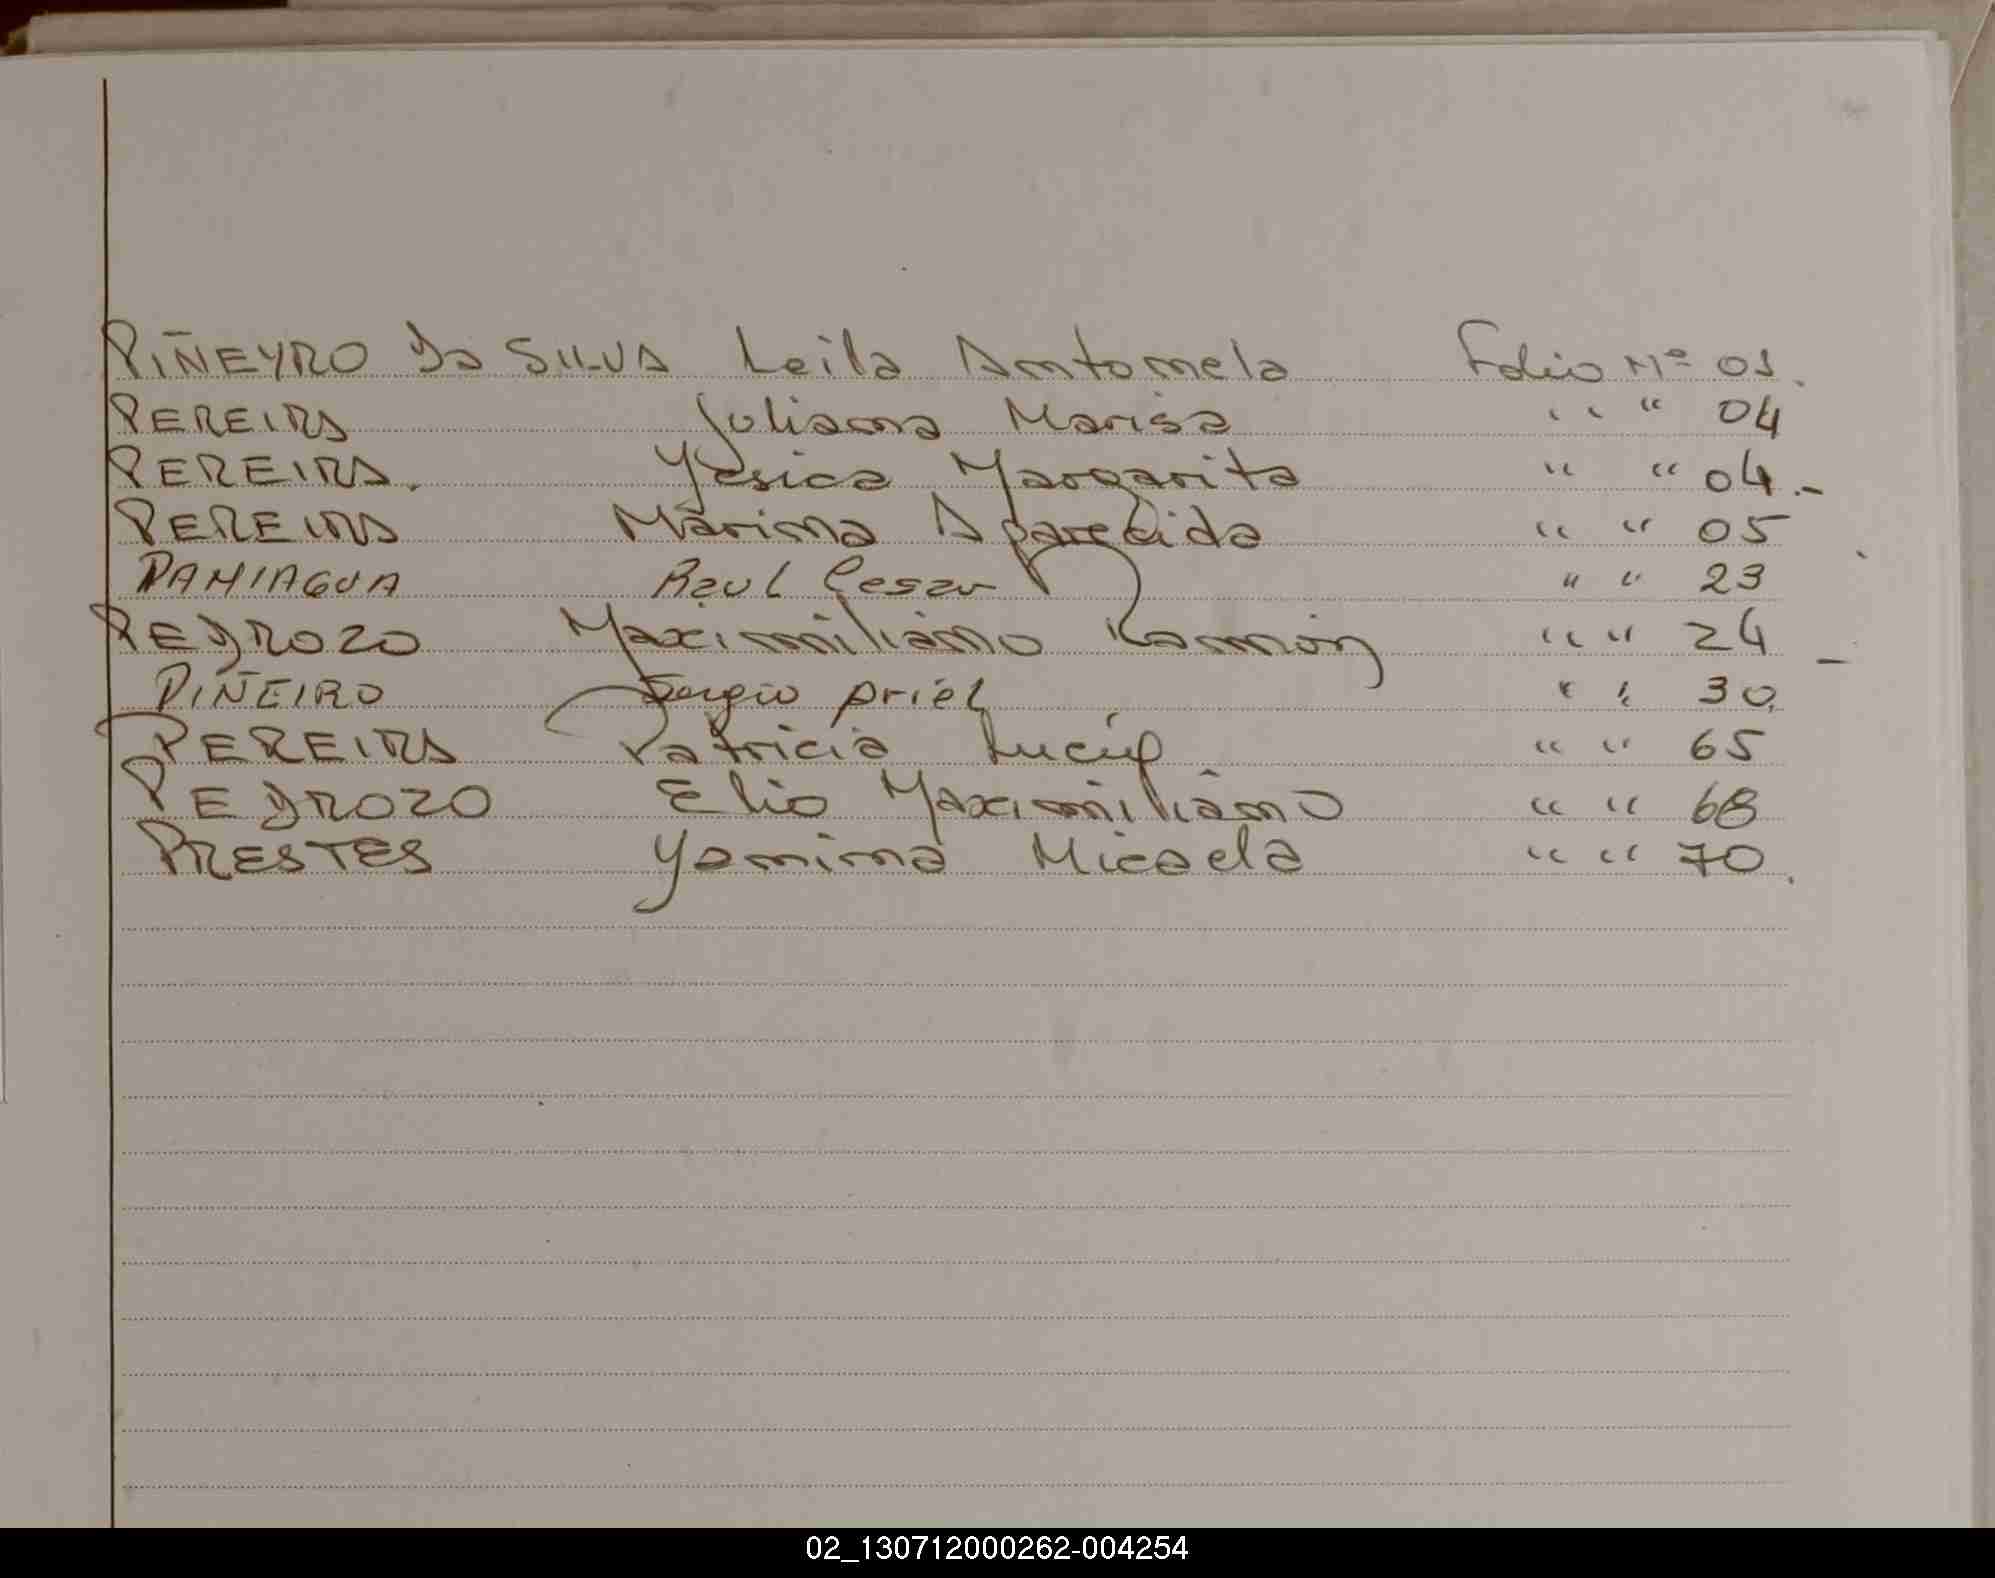 PIÑEYRO Da SILVA Leila Antonela Folio Nº 01.
PEREIRA Juliana Marisa " " 04
PEREIRA. Yesica Margarita " " 04.-
PEREIRA Marina Aparecida " " 05
PANIAGUA Raul Cesar " " 23
PEDROZO Maximiliano Ramón " " 24 -
PIÑEIRO Sergio Ariel " " 30.
PEREIRA Patricia " " 65
PEDROZO Elio Maximiliano " " 68
PRESTES Yamina Micaela " " 70.
02_130712000262-004254